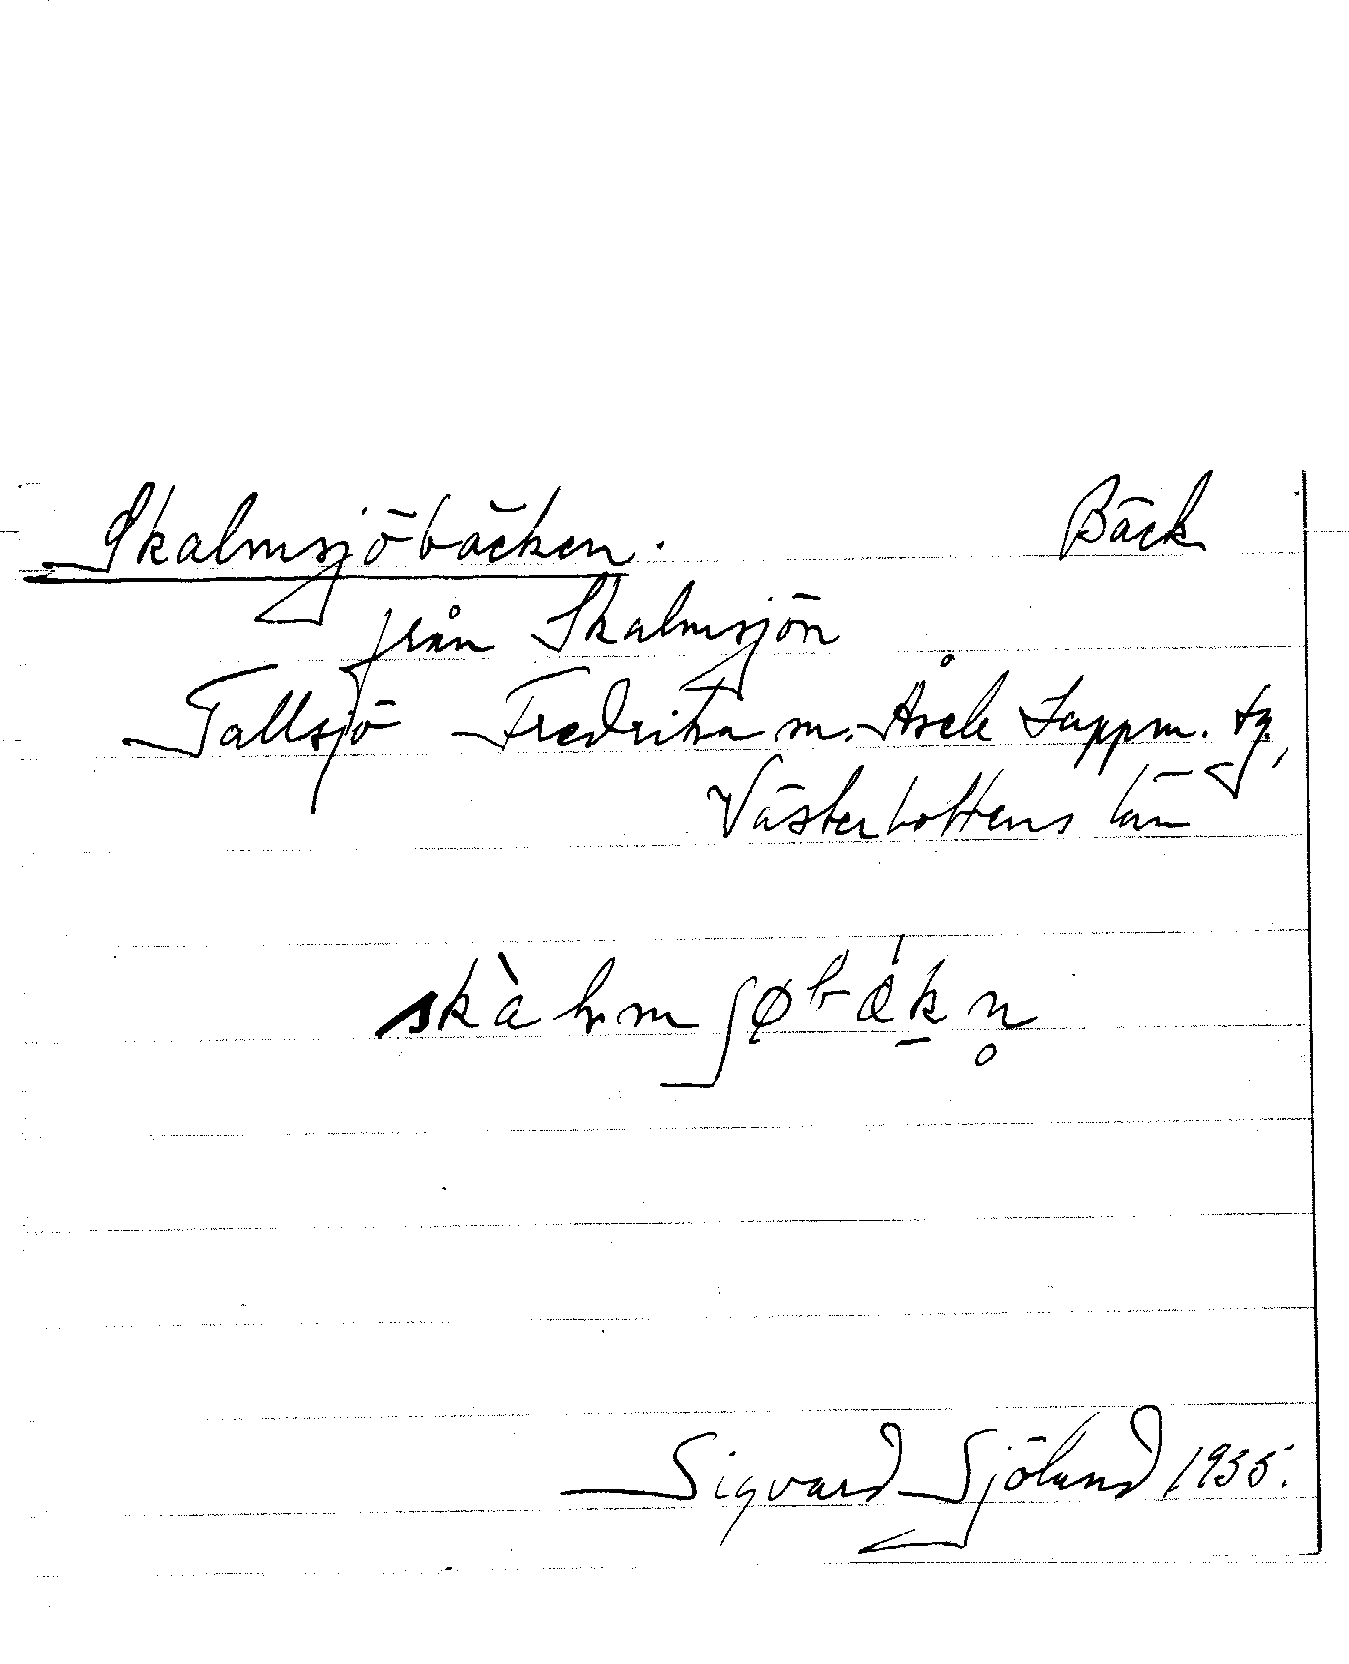 Skalmsjöbäcken. Bäck
från Skalmsjön
Tallsjö Fredrika m. Åsele Lappm. tg.,
Västerbottens län
Sigvard Sjölund 1935.